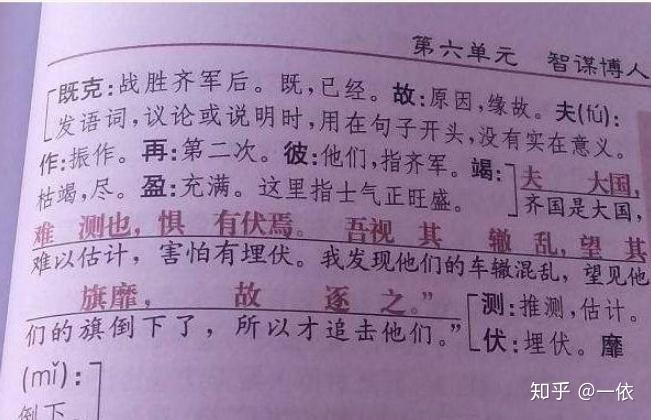 第六单元 智谋博人
既克:战胜齐军后。既,已经。故:原因,缘故。夫(fú):
发语词,议论或说明时,用在句子开头,没有实在意义。
作:振作。再:第二次。彼:他们,指齐军。竭:
枯竭,尽。盈:充满。这里指士气正旺盛。
夫 大国,
齐国是大国,
难 测也, 惧 有伏焉。 吾视 其 辙 乱, 望 其
难以估计, 害怕有埋伏。我发现他们的车辙混乱, 望见他
旗靡, 故 逐 之。”
们的旗倒下了, 所以才追击他们。”
测:推测,估计。
伏:埋伏。靡
(mǐ):
倒下。
知乎 @一依